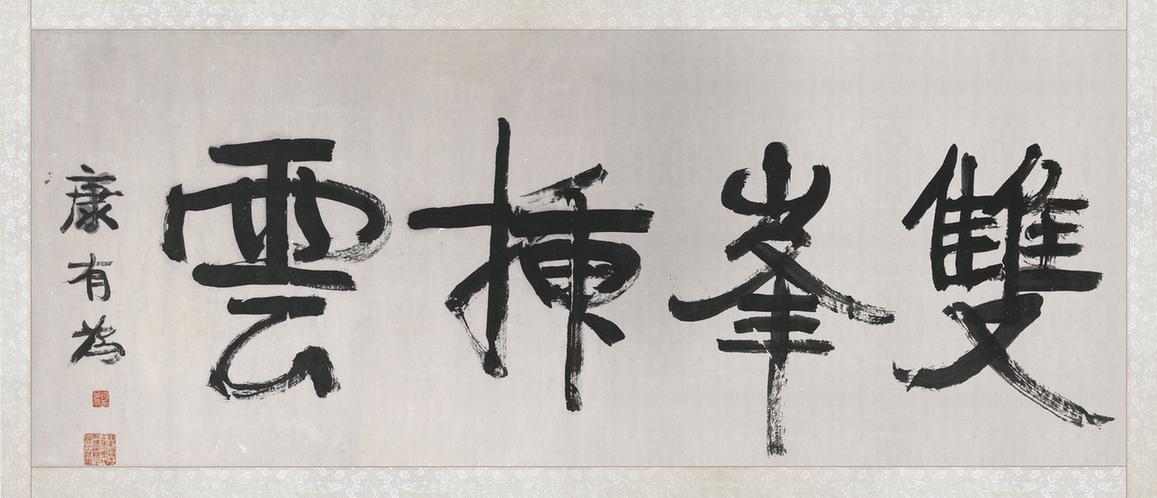 雙峯插雲
康有為